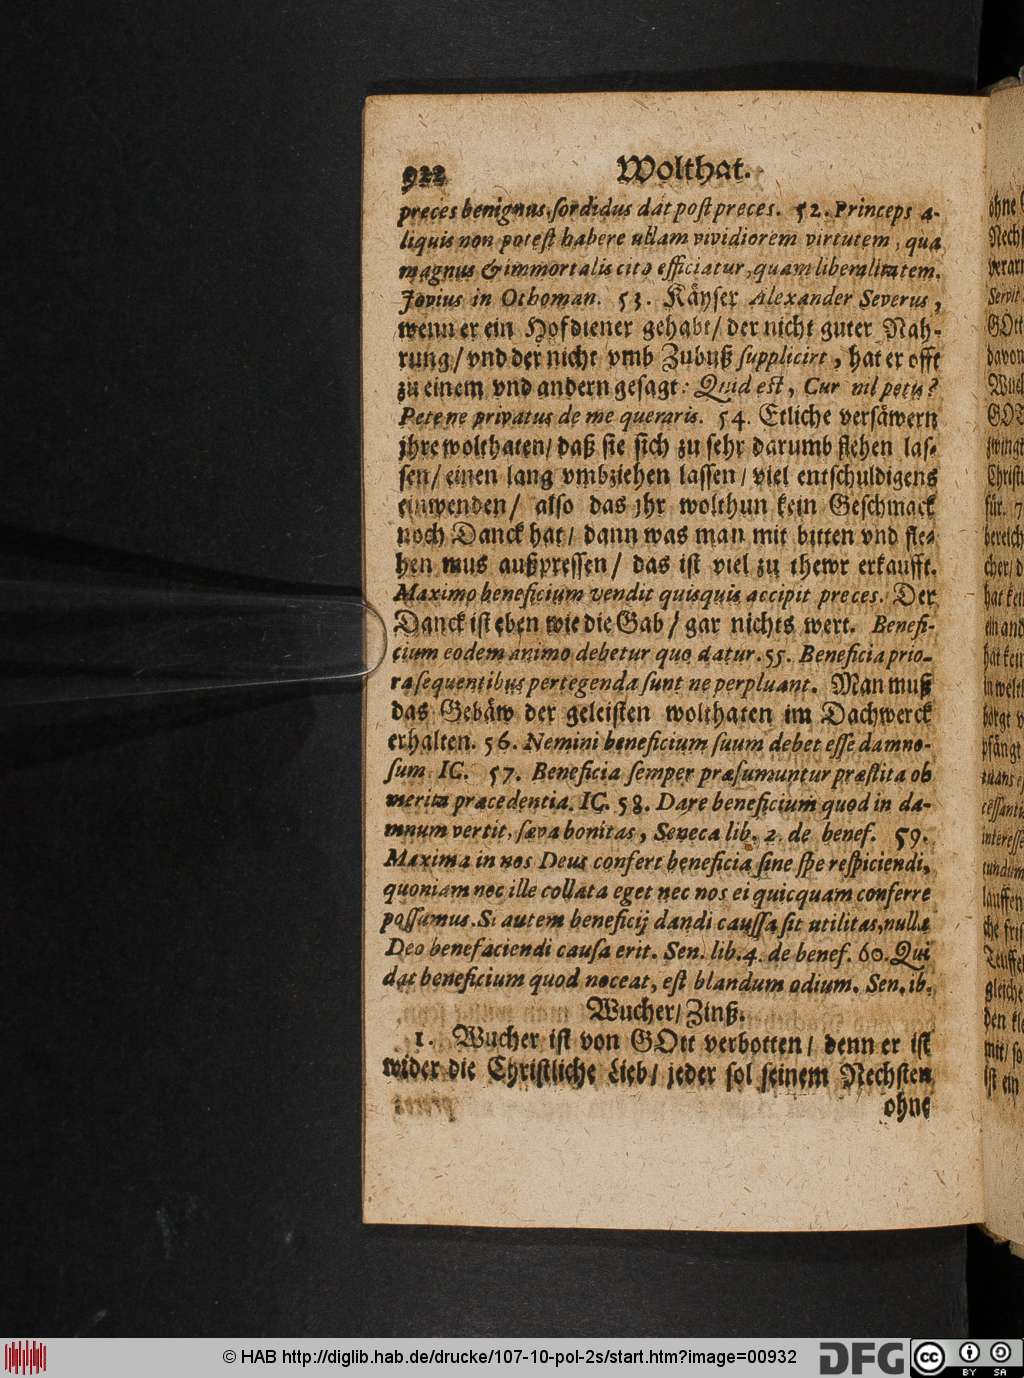 922 Wolthat.
preces benignus, sordidus dat post preces. 52. Princeps a-
liquis non potest habere ullam vividiorem virtutem, qua
magnus & immortalis cito efficiatur, quam liberalitatem.
Jovius in Othoman. 53. Käyser Alexander Severus,
wenn er ein Hofdiener gehabt/ der nicht guter Nah-
rung/ vnd der nicht vmb Zubuß supplicirt, hat er offt
zu einem vnd andern gesagt: Quid est, Cur nil petis?
Pete ne privatus de me queraris. 54. Etliche versäwern
jhre wolthaten/ daß sie sich zu sehr darumb flehen las-
sen/ einen lang vmbziehen lassen/ viel entschuldigens
einwenden/ also das jhr wolthun kein Geschmack
noch Danck hat/ dann was man mit bitten vnd fle-
hen mus außpressen/ das ist viel zu thewr erkaufft.
Maximo beneficium vendit quisquis accipit preces. Der
Danck ist eben wie die Gab/ gar nichts wert. Benefi-
cium eodem animo debetur quo datur. 55. Beneficia prio-
ra sequentibus pertegenda sunt ne perpluant. Man muß
das Gebäw der geleisten wolthaten im Dachwerck
erhalten. 56. Nemini beneficium suum debet esse damno-
sum IC. 57. Beneficia semper præsumuntur præstita ob
merita præcedentia. IC. 58. Dare beneficium quod in da-
mnum vertit, sæva bonitas, Seneca lib. 2. de benef. 59.
Maxima in nos Deus confert beneficia sine spe respiciendi,
quoniam nec ille collata eget nec nos ei quicquam conferre
possumus. Si autem beneficij dandi caussa sit utilitas, nulla
Deo benefaciendi causa erit. Sen. lib. 4. de benef. 60. Qui
dat beneficium quod noceat, est blandum odium. Sen. ib.
Wucher/ Zinß.
1. Wucher ist von GOtt verbotten/ denn er ist
wider die Christliche Lieb/ jeder sol seinem Nechsten
ohne
© HAB http://diglib.hab.de/drucke/107-10-pol-2s/start.htm?image=00932
DFG
cc BY SA